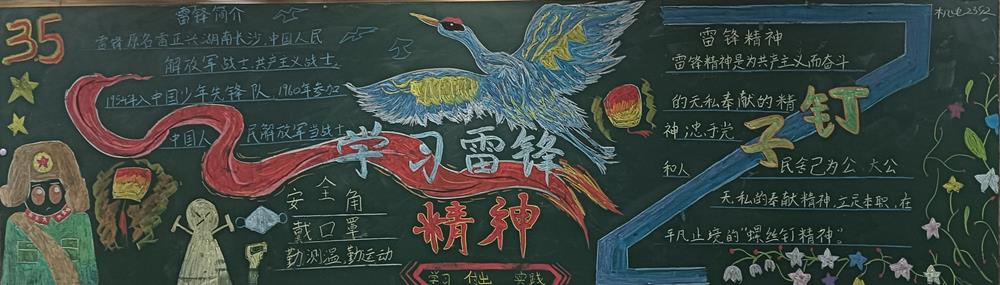 35
雷锋简介
雷锋原名雷正兴湖南长沙,中国人民
解放军战士,共产主义战士,
1954年入中国少年先锋队,1960年参加
中国人民解放军当战士
学习雷锋
精神
学习 付出 实践
安全角
戴口罩
勤测温,勤运动
雷锋精神
雷锋精神是为共产主义而奋斗
的无私奉献的精
神,忠于党
和人民舍己为公 大公
无私的奉献精神,立足本职,在
平凡止境的"螺丝钉精神"。
钉
子
机电2352